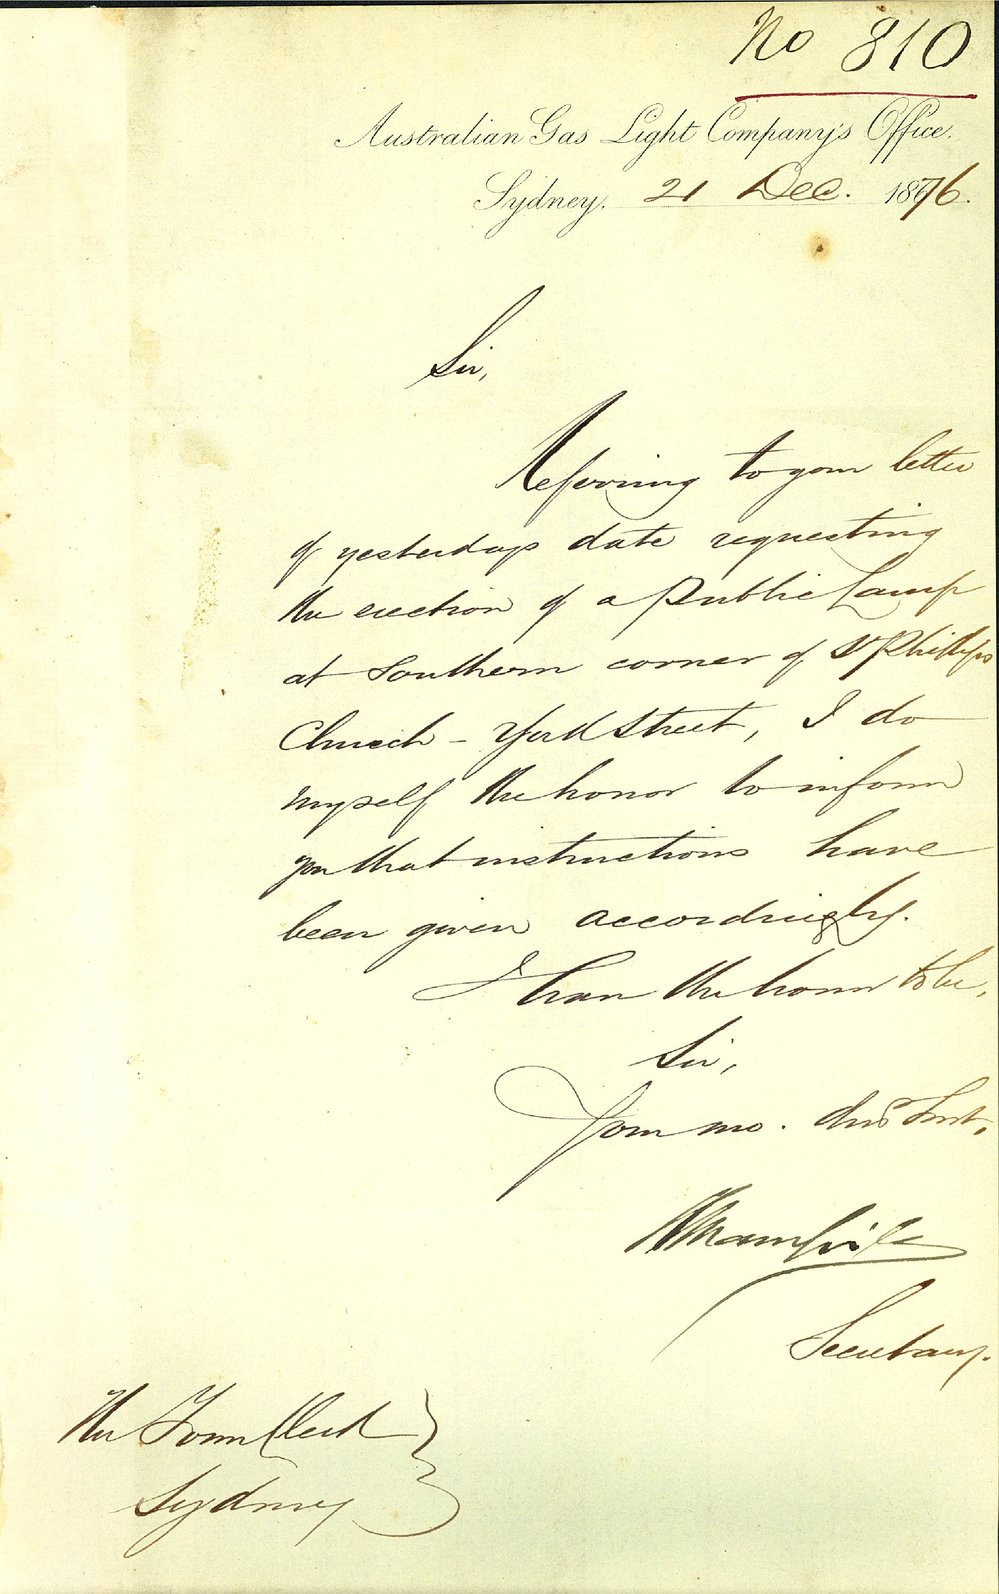 No 810
Australian Gas Light Company's Office.
Sydney. 21 Dec. 1876.
Sir,
Referring to your letter
of yesterdays date requesting
the erection of a Public Lamp
at Southern corner of St Phillips
Church - York Street, I do
myself the honor to inform
you that instructions have
been given accordingly.
I have the honor to be,
Sir,
Your mo. obt Servt,
Secretary.
The Town Clerk
Sydney